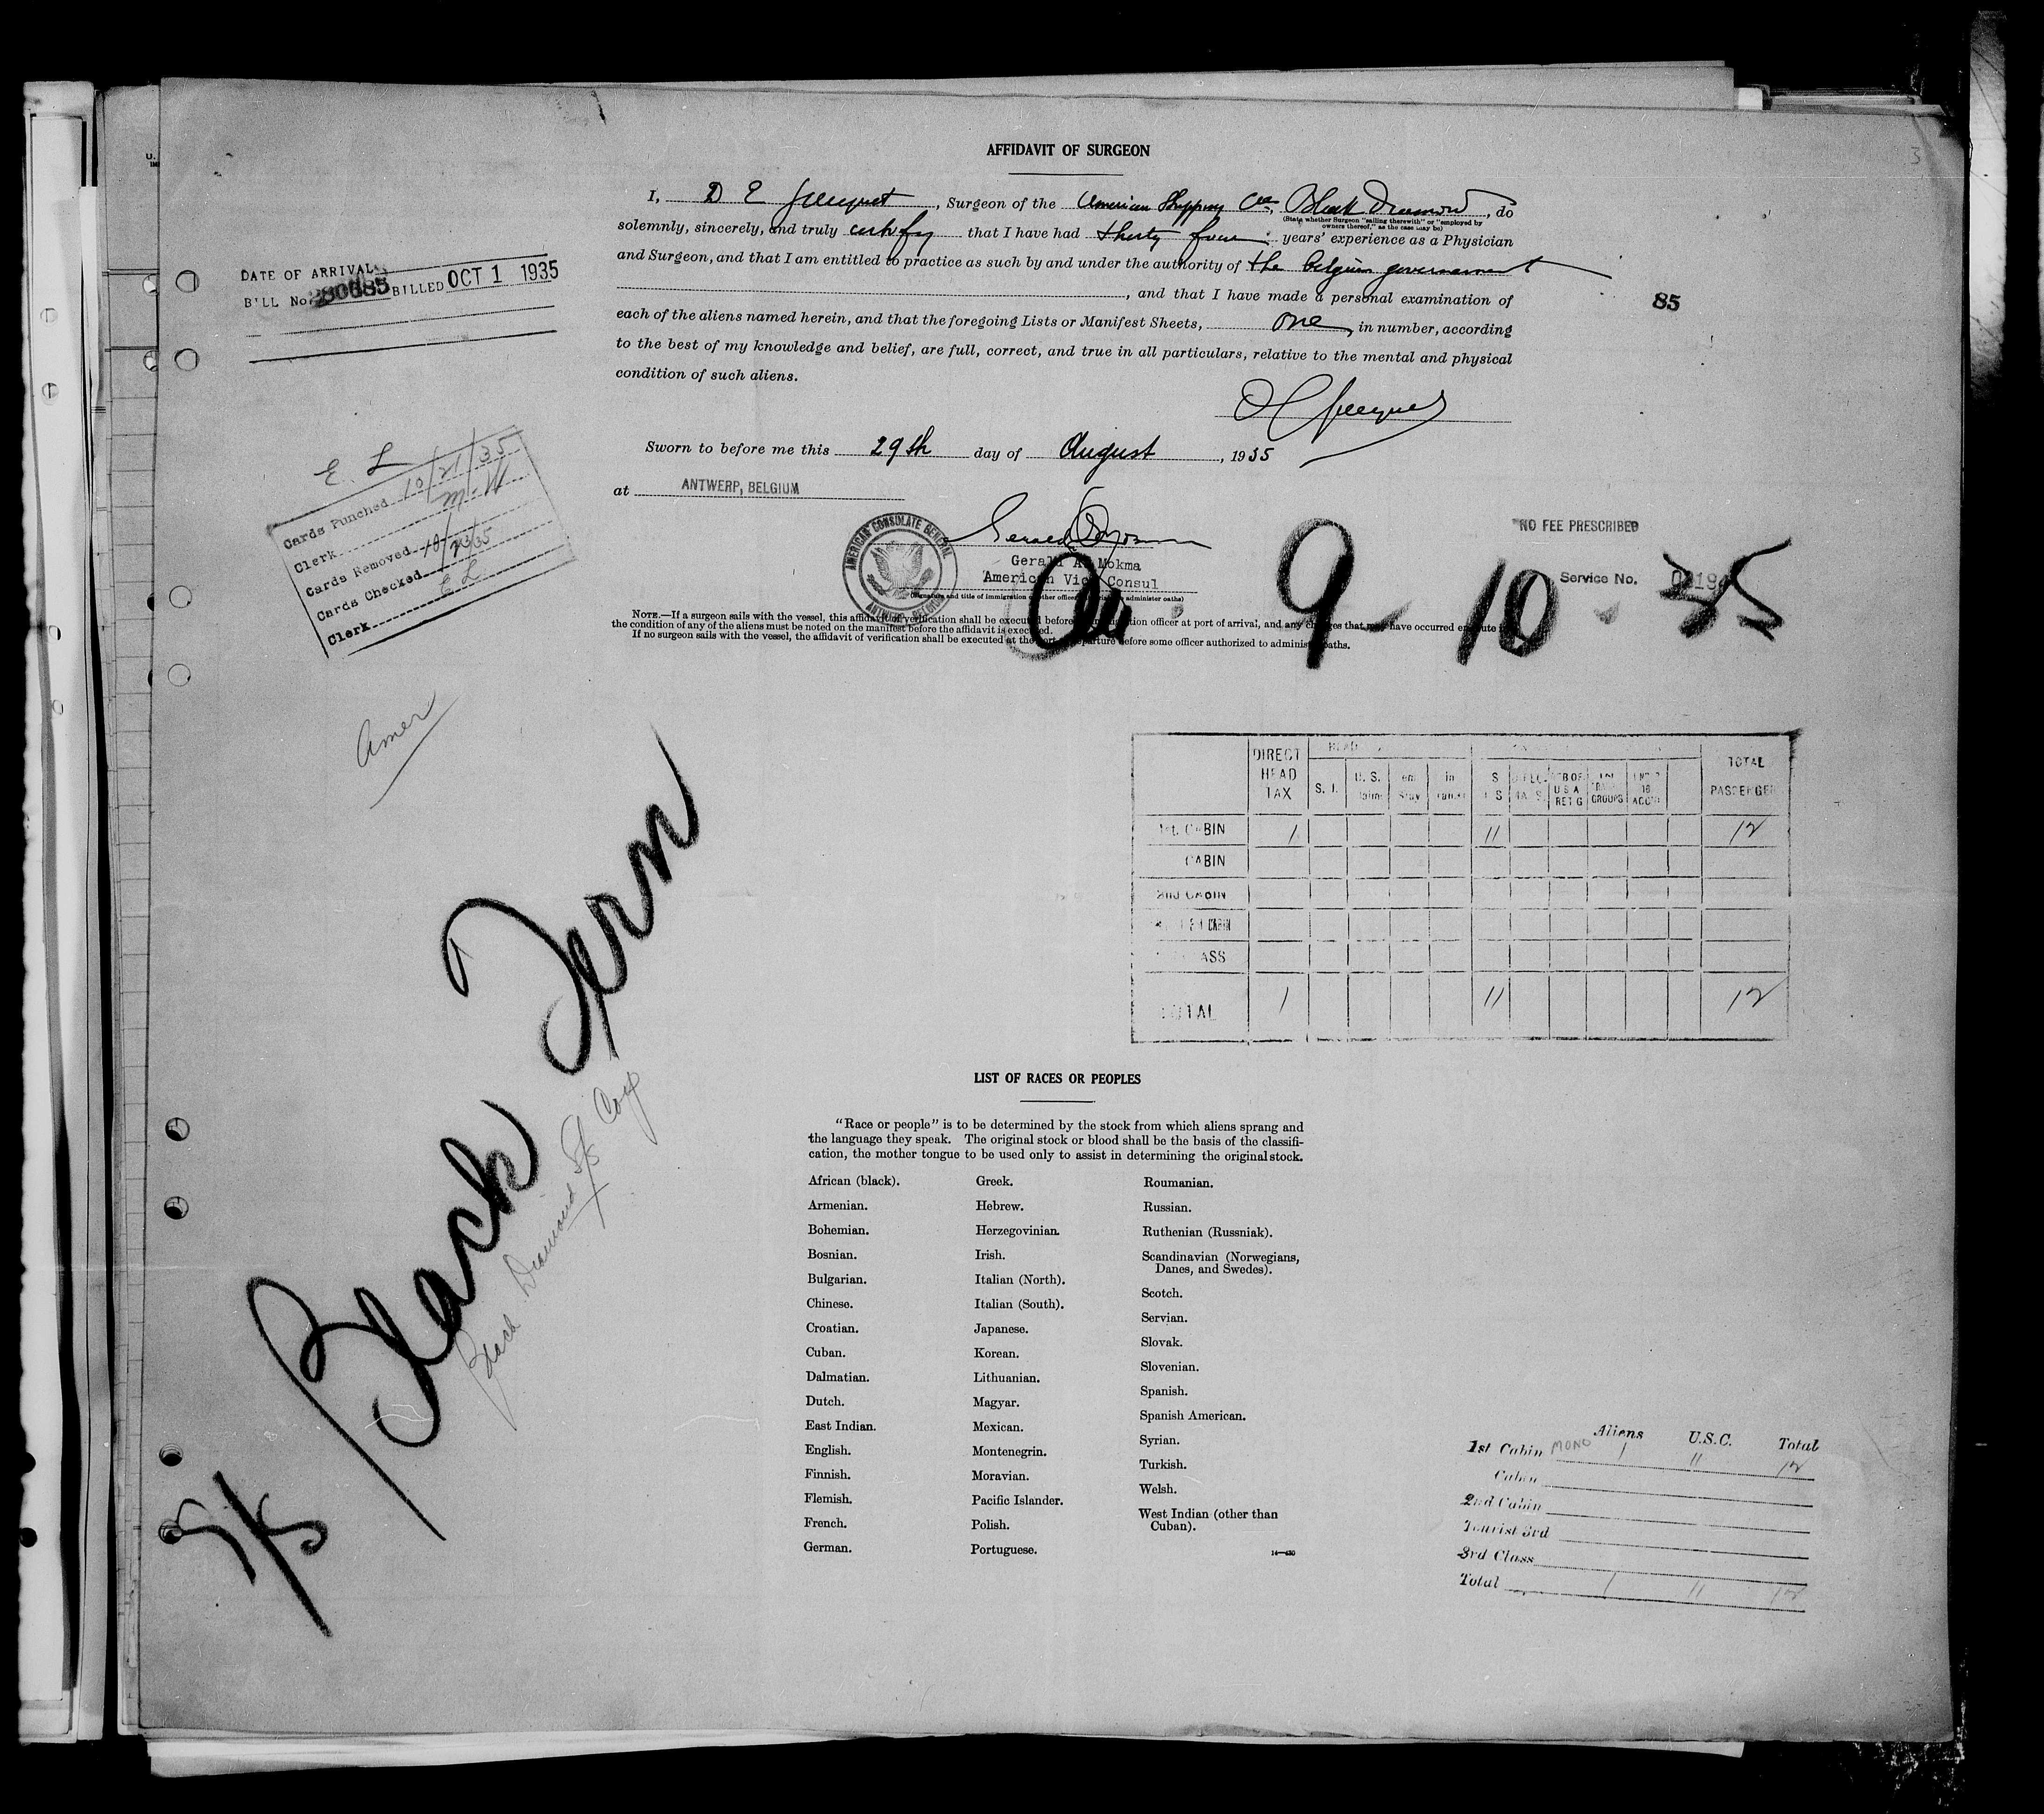 AFFIDAVIT OF SURGEON
I, D E , Surgeon of the American Shipping Black Diamond, do
(State whether Surgeon "sailing therewith" or "employed by
owners thereof," as the case may be)
solemnly, sincerely, and truly certify that I have had thirty four years' experience as a Physician
and Surgeon, and that I am entitled to practice as such by and under the authority of the belgian government
, and that I have made a personal examination of
each of the aliens named herein, and that the foregoing Lists or Manifest Sheets, one in number, according
to the best of my knowledge and belief, are full, correct, and true in all particulars, relative to the mental and physical
condition of such aliens.
Sworn to before me this 29th day of August, 1935
at ANTWERP, BELGIUM
DATE OF ARRIVAL
BILL No. 280685 BILLED OCT 1 1935
85
3
E. L
Cards Punched 10/21/35
Clerk M.N
Cards Removed
Cards Checked 10/23/35
Clerk E L
AMERICAN CONSULATE GENERAL
ANTWERP, BELGIUM
Gerald A. Mokma
American Vice Consul
(Signature and title of immigration or other officer authorized to administer oaths)
NO FEE PRESCRIBED
Service No.
9-10-35
NOTE.—If a surgeon sails with the vessel, this affidavit of verification shall be executed before immigration officer at port of arrival, and any changes that may have occurred en route in
the condition of any of the aliens must be noted on the manifest before the affidavit is executed.
If no surgeon sails with the vessel, the affidavit of verification shall be executed at the port of departure before some officer authorized to administer oaths.
Amer
DIRECT HEAD TAX
S. I.
U. S.
TOTAL PASSENGER
USA RET G
GROUPS
1st. CABIN 1 11 12
CABIN
2nd CABIN
CABIN
CLASS
TOTAL 1 11 12
S/S Black Fern
Black Diamond SS Corp
LIST OF RACES OR PEOPLES
"Race or people" is to be determined by the stock from which aliens sprang and
the language they speak. The original stock or blood shall be the basis of the classifi-
cation, the mother tongue to be used only to assist in determining the original stock.
African (black).
Armenian.
Bohemian.
Bosnian.
Bulgarian.
Chinese.
Croatian.
Cuban.
Dalmatian.
Dutch.
East Indian.
English.
Finnish.
Flemish.
French.
German.
Greek.
Hebrew.
Herzegovinian.
Irish.
Italian (North).
Italian (South).
Japanese.
Korean.
Lithuanian.
Magyar.
Mexican.
Montenegrin.
Moravian.
Pacific Islander.
Polish.
Portuguese.
Roumanian.
Russian.
Ruthenian (Russniak).
Scandinavian (Norwegians,
Danes, and Swedes).
Scotch.
Servian.
Slovak.
Slovenian.
Spanish.
Spanish American.
Syrian.
Turkish.
Welsh.
West Indian (other than
Cuban).
Aliens U.S.C. Total
1st Cabin MONO 1 11 12
Cabin
2nd Cabin
Tourist 3rd
3rd Class
Total 1 11 12